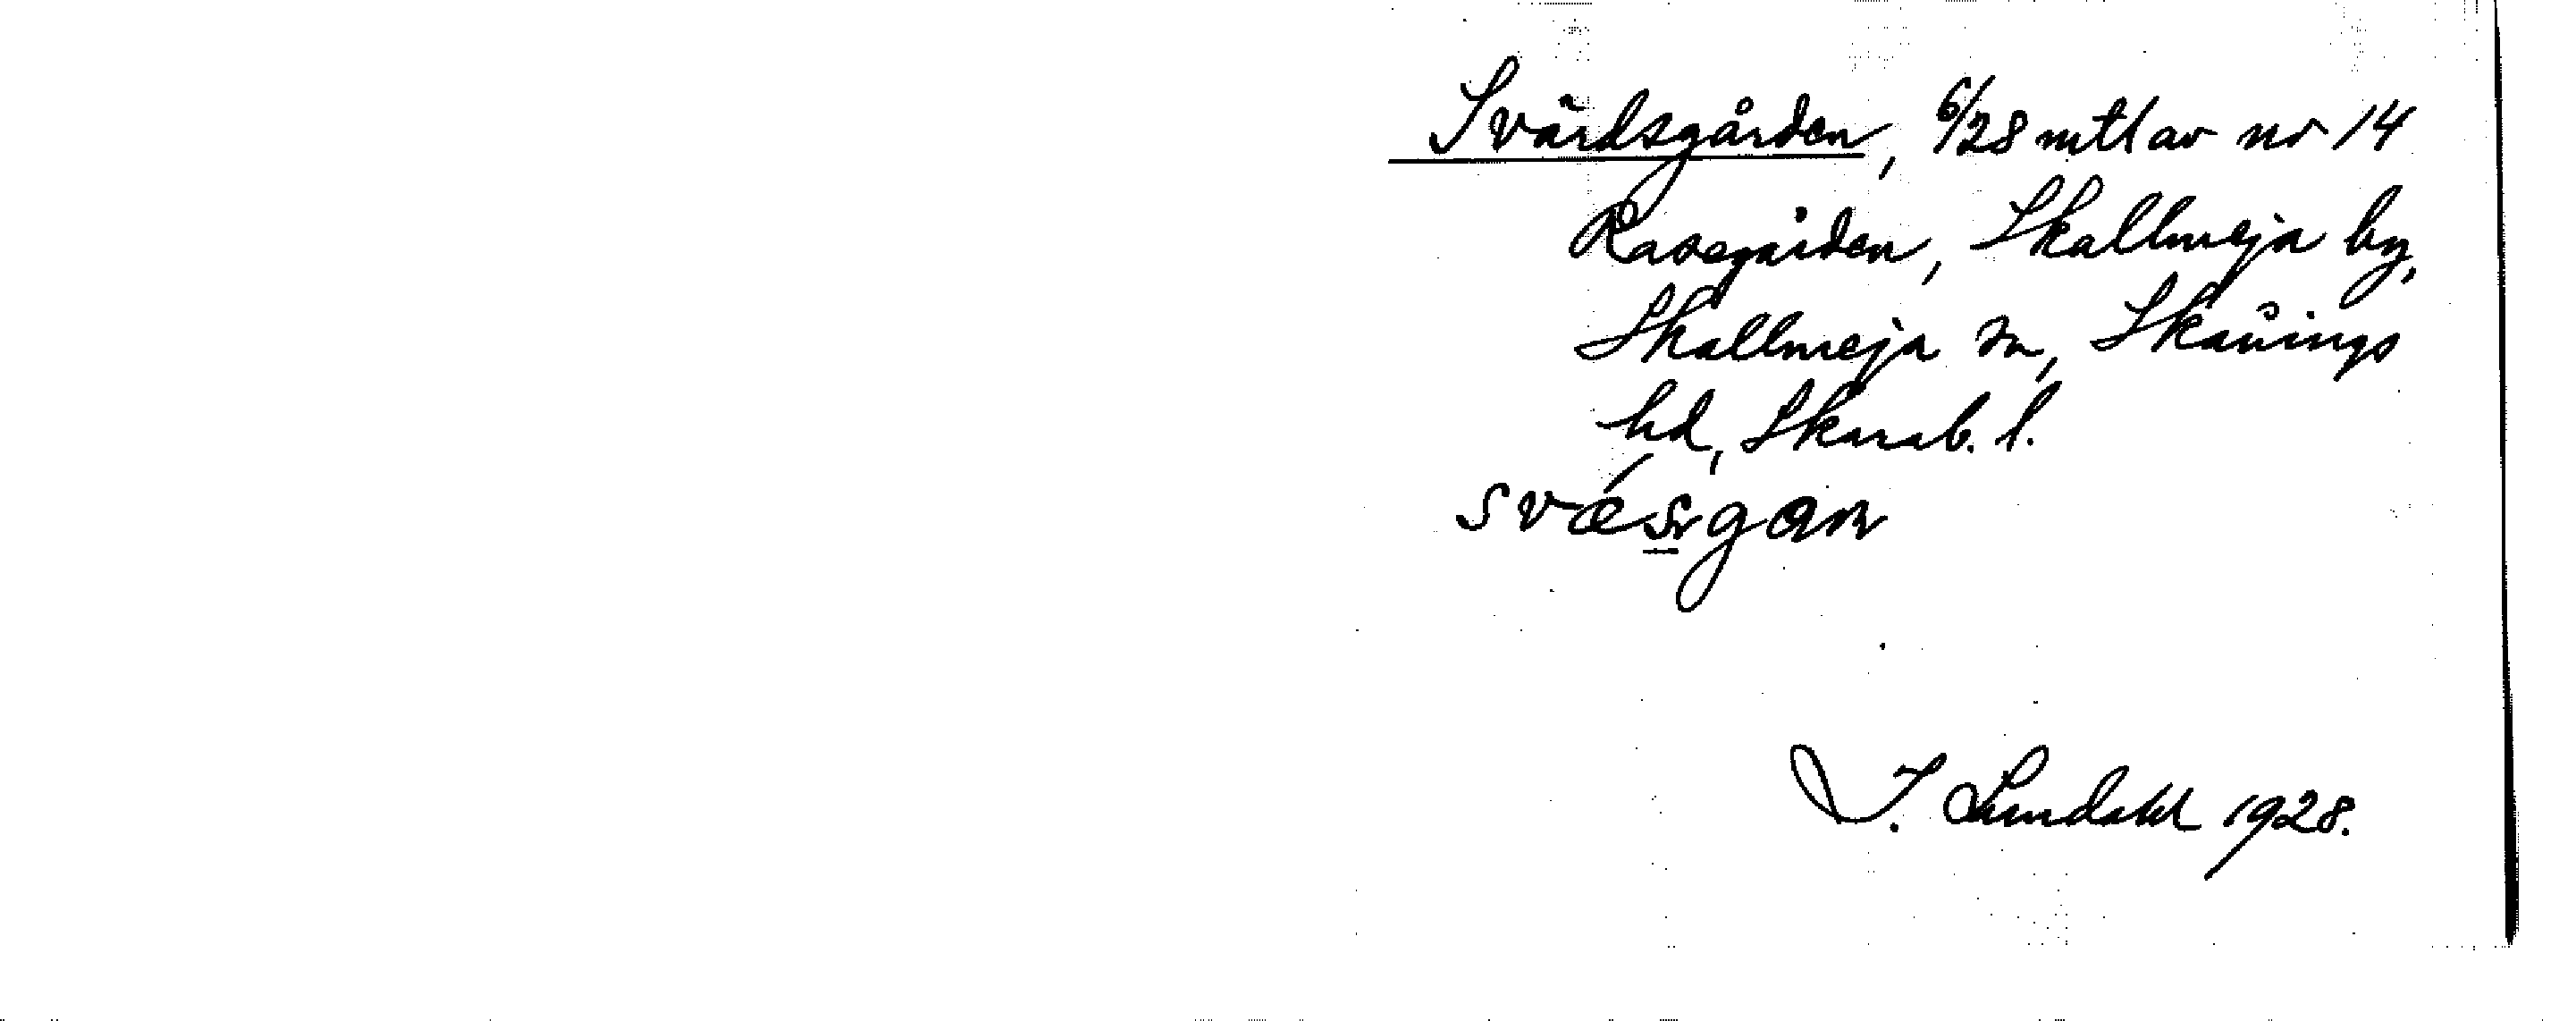 Svärdsgården, 6/28 mtl av nr 14
Rasegården, Skallmeja by,
Skallmeja sn, Skånings
hd, Skarab. l.
I. Lundahl 1928.